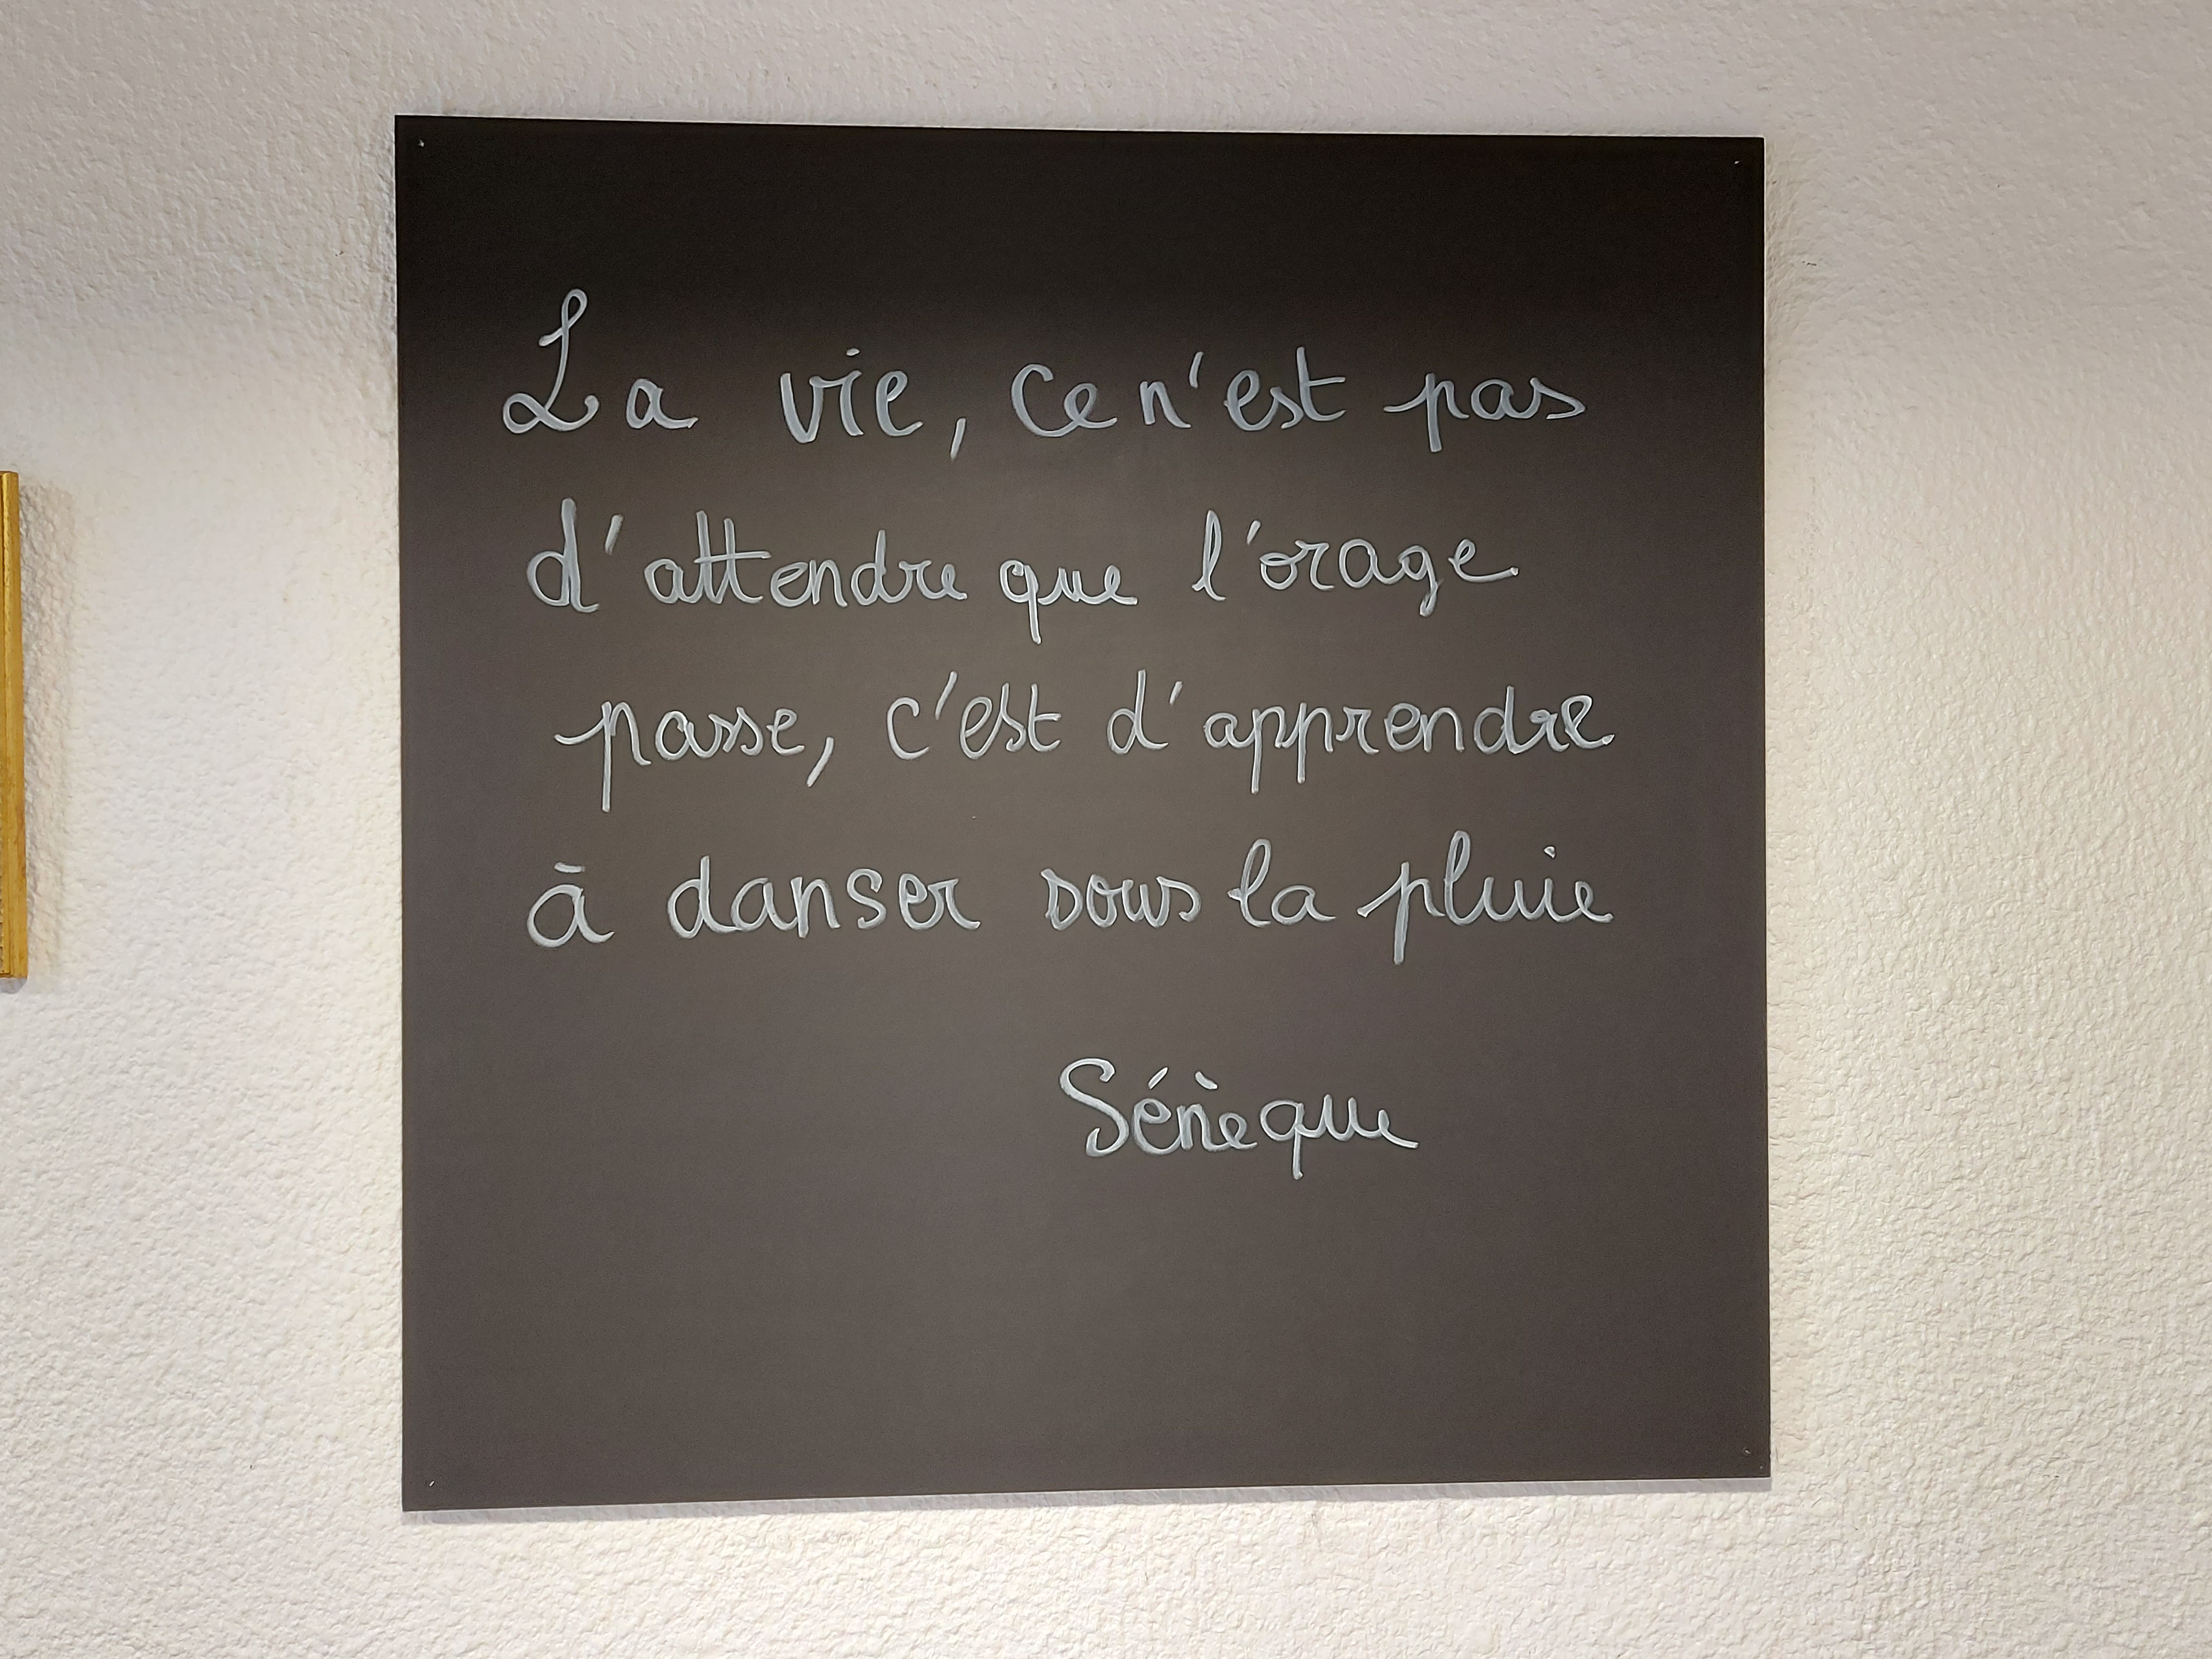 La vie, ce n'est pas
d'attendre que l'orage
passe, c'est d'apprendre
à danser sous la pluie
Sénèque